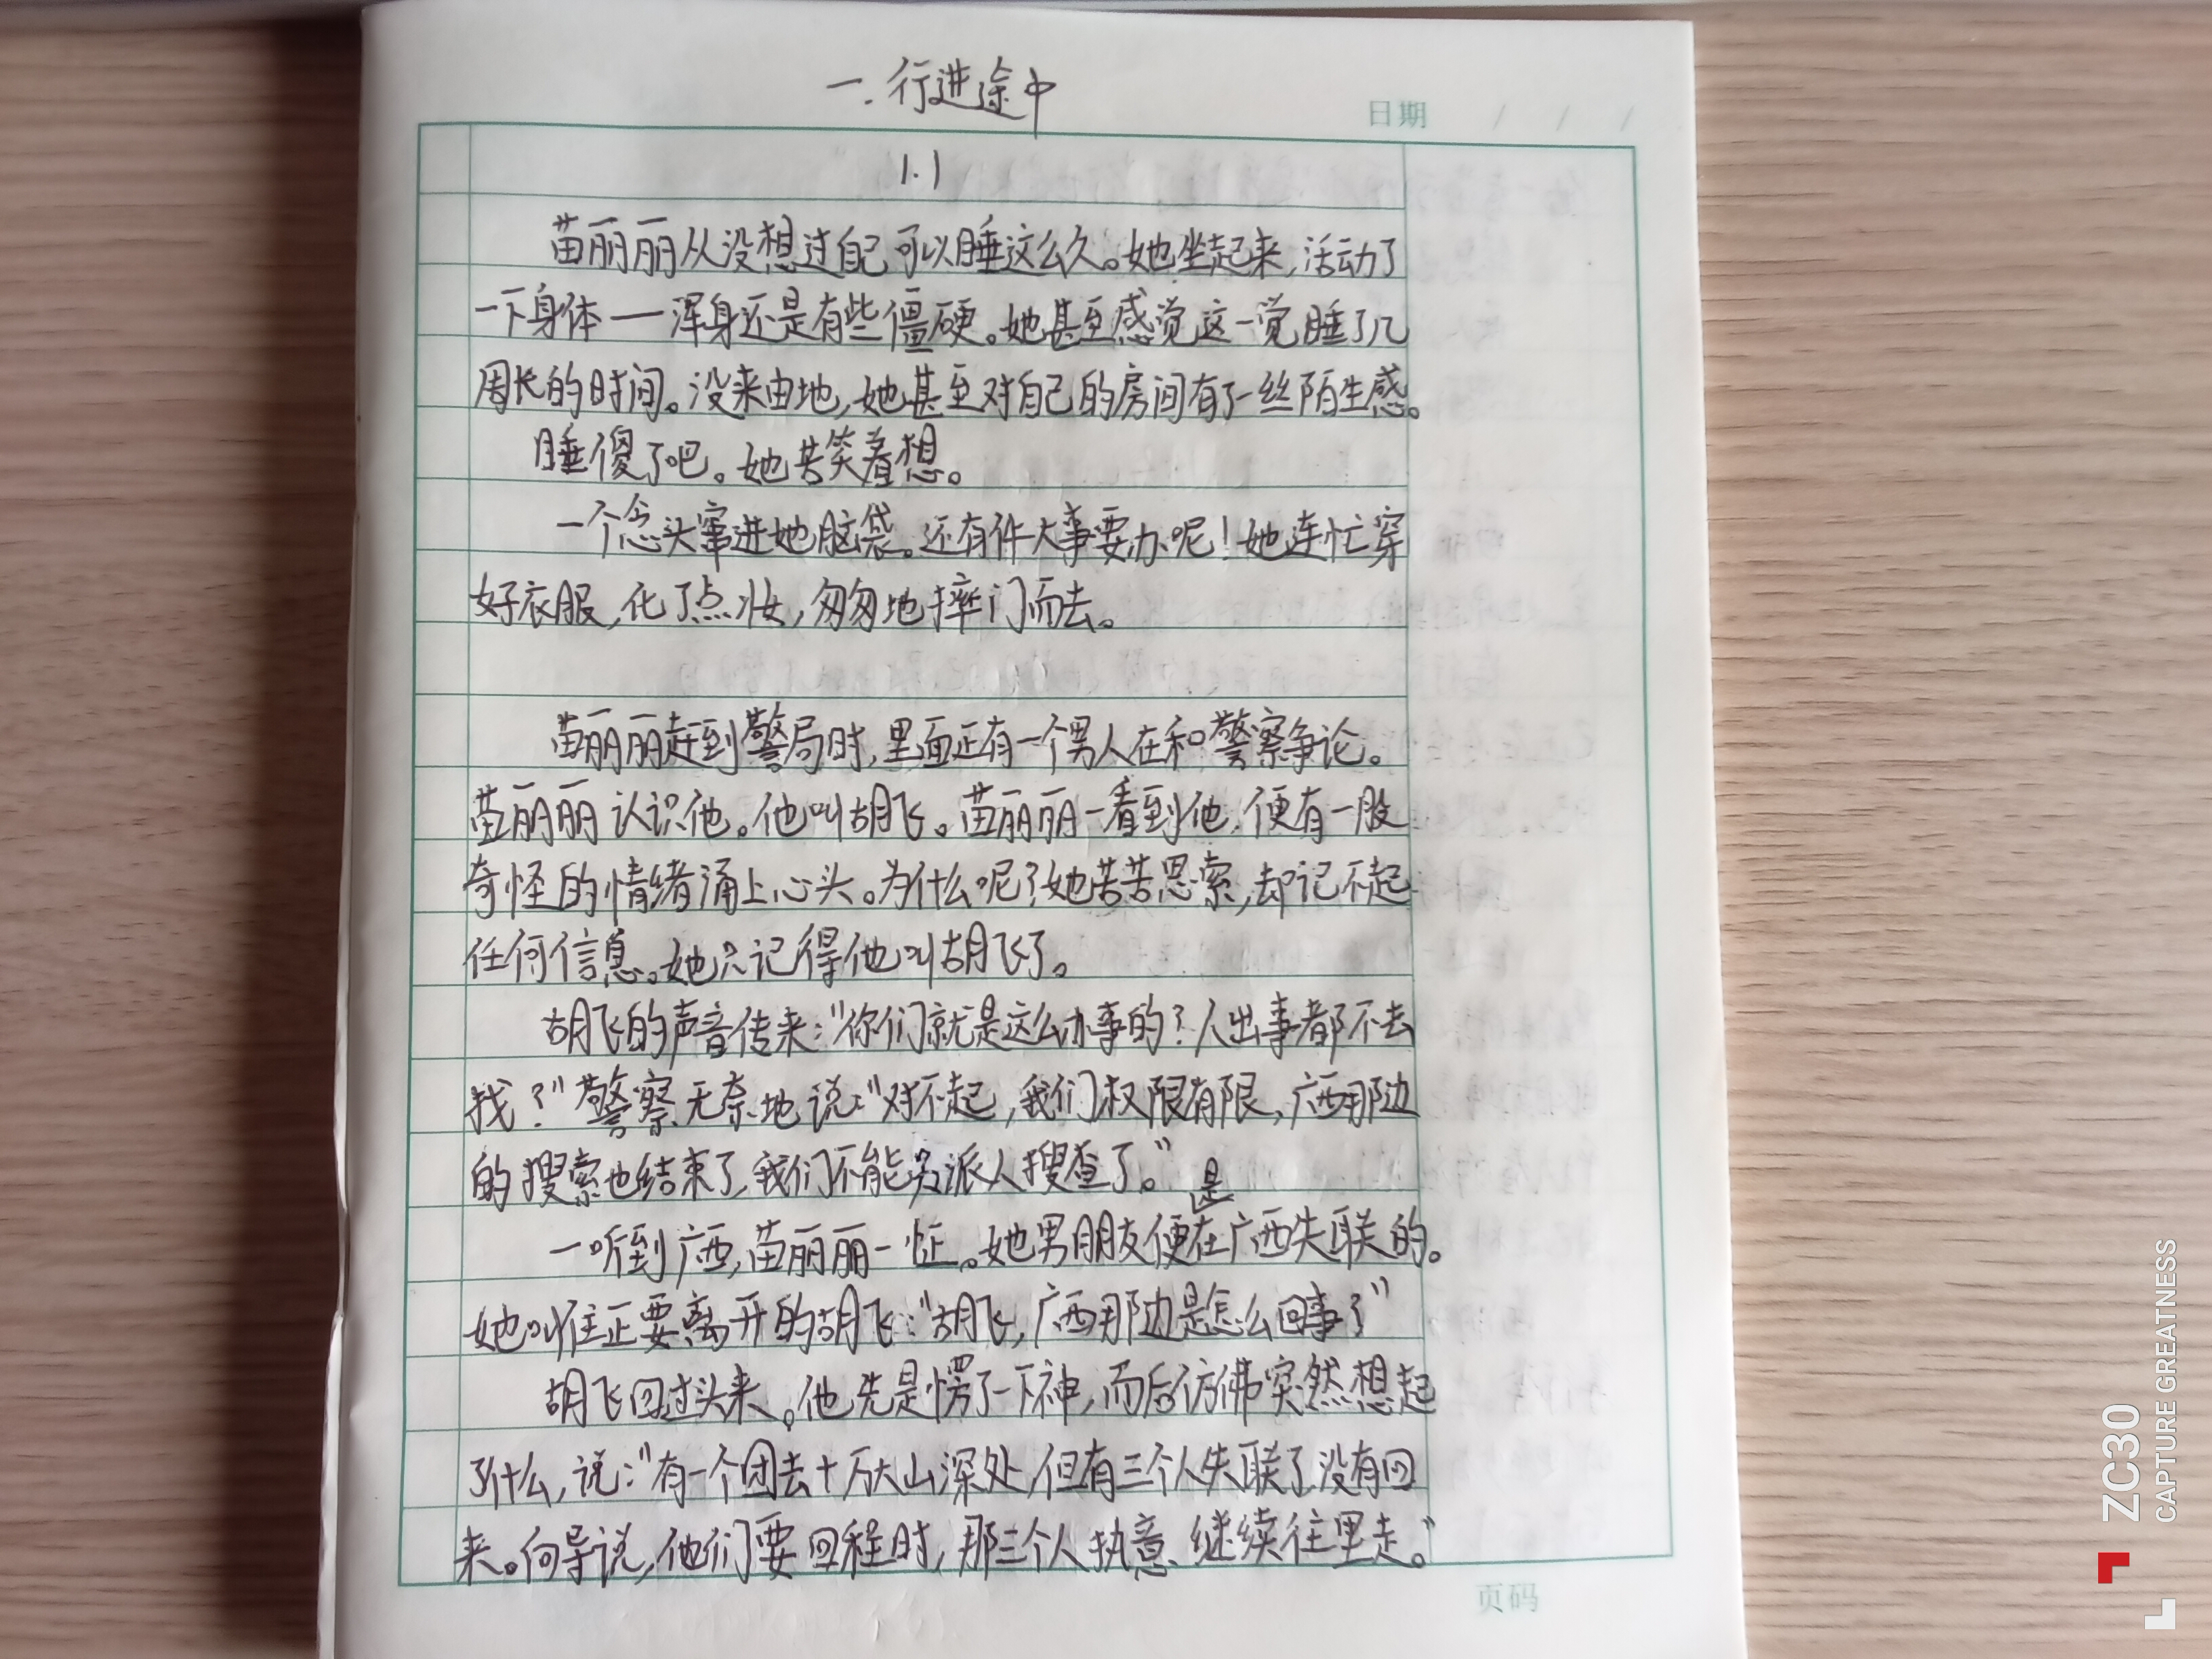 一.行进途中
日期 / / /
1.1
苗丽丽从没想过自己可以睡这么久。她坐起来,活动了
一下身体——浑身还是有些僵硬。她甚至感觉这一觉睡了几
周长的时间。没来由地,她甚至对自己的房间有了一丝陌生感。
睡傻了吧。她苦笑着想。
一个念头窜进她脑袋。还有件大事要办呢!她连忙穿
好衣服,化了点妆,匆匆地摔门而去。
苗丽丽赶到警局时,里面正有一个男人在和警察争论。
苗丽丽认识他。他叫胡飞。苗丽丽一看到他,便有一股
奇怪的情绪涌上心头。为什么呢?她苦苦思索,却记不起
任何信息。她只记得他叫胡飞了。
胡飞的声音传来:"你们就是这么办事的?人出事都不去
找?"警察无奈地说:"对不起,我们权限有限,广西那边
的搜索也结束了,我们不能另派人搜查了。"
一听到广西,苗丽丽一怔。她男朋友便是在广西失联的。
她叫住正要离开的胡飞:"胡飞,广西那边是怎么回事?"
胡飞回过头来。他先是愣了一下神,而后仿佛突然想起
了什么,说:"有一个团去十万大山深处,但有三个人失联了,没有回
来。向导说,他们要回程时,那三个人执意继续往里走。"
页码
ZC30
CAPTURE GREATNESS